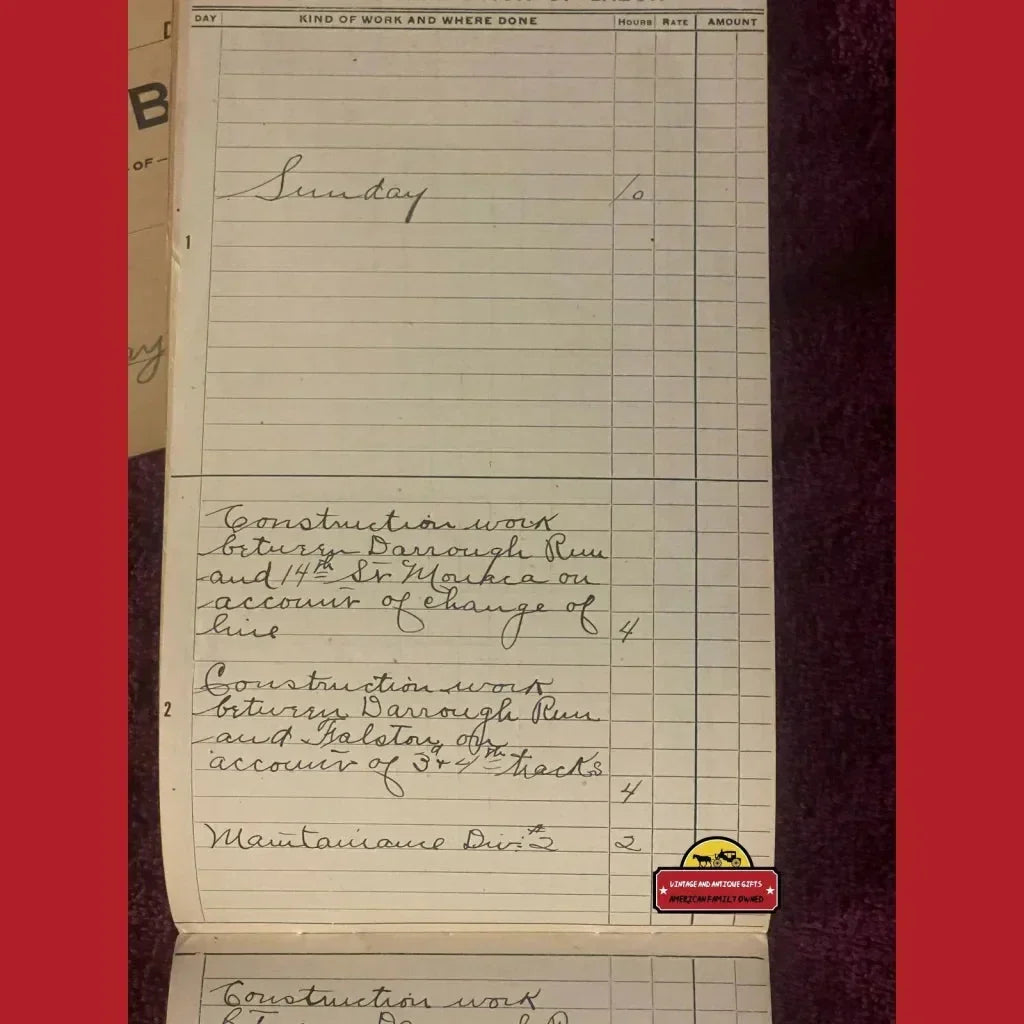 B
OF —
DAY KIND OF WORK AND WHERE DONE HOURS RATE AMOUNT
Sunday 10
1
ay
Construction work
between Darrough Run
and 14th St Monaca on
account of change of
line 4
2
Construction work
between Darrough Run
and Halston, on
account of 3d & 4th tracks
4
Maintainance Div. #2 2
VINTAGE AND ANTIQUE GIFTS
AMERICAN FAMILY OWNED
Construction work